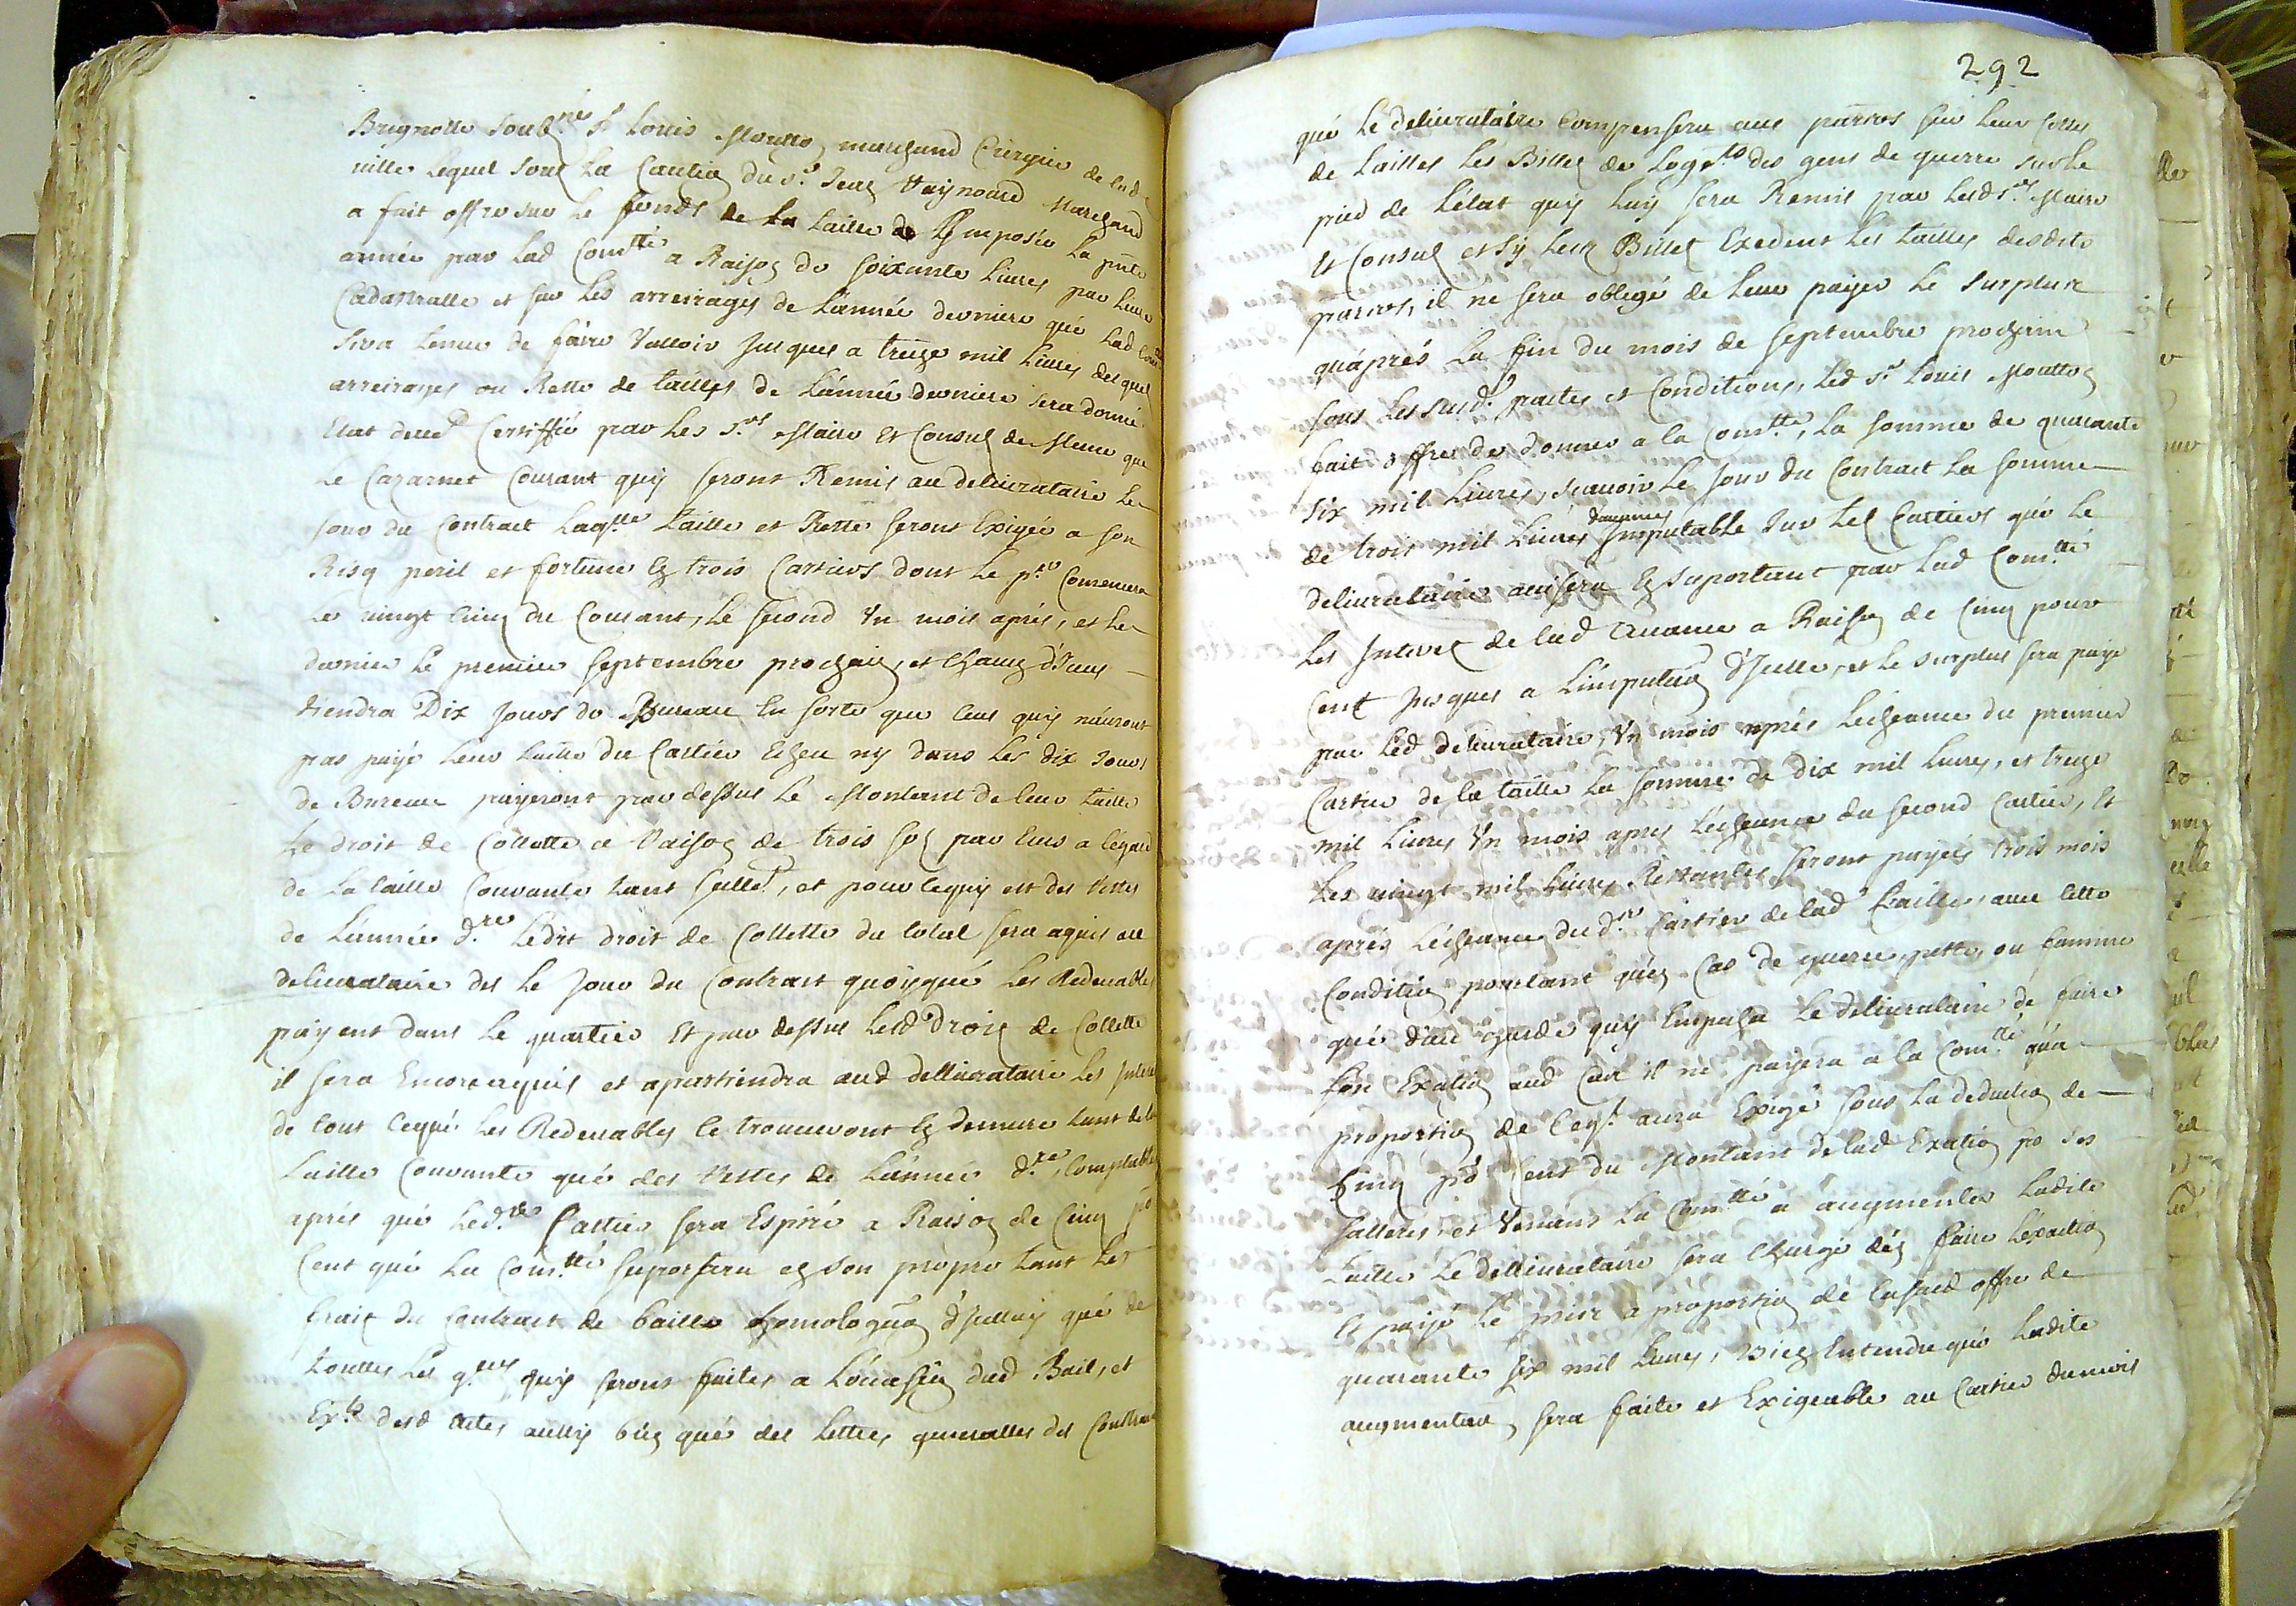 Brignolle soubz.né Sr Louis Moutto marchand Ciergier de lad
ville lequel sous la Cautioñ du Sr Jean Haynoard Marchand
a fait offre sur le fonds de la taille de Imposée la pnte
année par lad Com.tté a Raisoñ de soixante livres par livre
Cadastralle et sur les arreirages de L'année derniere qué Lad Com.tté
sera tenue de faire Valloir jusques a treize mil livres desquels
arreirages ou Reste de tailles de L'année derniere sera donné
Etat deue.t Certiffié par les S.rs Maire Et Consuls de Meme que
le Cazarnet Courant quy seront Remis au delivrataire le
jour du Contract laq.lle taille et Reste seront Exigée a son
Risq peril et fortune eñ trois Cartiers dont le p.er Comencera
le vingt Cinq du Courant, le second Vn mois après, et le
dernier le premier septembre prochaiñ, et Chacuñ d'Iceus
tiendra Dix jours de Bureau En sorte que Ceus quy n'auront
pas payé leur taille du Cartier Echeu ny dans les dix jours
de Bureau payeront par dessus le Montant de leur taille
le droit de Collette a Raisoñ de trois sols par Ecus a l'égard
de la taille Courante tant seulle.t, et pour cequy est des Restes
de L'année d.re ledit droit de Collette du total sera aquis au
delivrataire des le jour du Contract quoyqué les Redevables
payent dans le quartier Et par dessus lesd Droits de Collette
il sera Encore aquis et apartiendra aud dellivrataire les Interets
de tout cequé les Redevables se trouveront eñ demeure tant de la
taille Courante qué des Restes de L'année d.re, Comptables
après qué led. Cartier sera Espiré a Raisoñ de Cinq p.r
Cent qué la Com.tté suportera eñ son propre tant les
frait du Contract de baille homologaõñ d'Jcelluy qué de
touttes les q.ces quy seront faites a L'ocasioñ dud Bail, et
Ex.ts desd actes aussy bieñ qué des lettres generalles des Contrain
292
qué le delivrataire Compensera aus parros sur leur Cottes
de tailles les Billets de Logt.s des gens de guerre sur le
pied de l'état quy luy sera Remis par lesd S.rs Maire
Et Consuls et sy leurs Billets Exedent les tailles desdits
parros, il ne sera obligé de leur payer le surplus
qu'après la fin du mois de septembre prochain
sous les susd. pactes et Conditions, led Sr Louis Moutton
fait offre de donner a la Com.tté, la somme de quarante
six mil livres, scavoir le jour du Contract la somme
de trois mil livres d'avance Imputable sur lel Cartiers qué le
delivrataire avisera eñ suportant par lad Com.tté
les Interets de lad avance a Raisoñ de Cinq pour
Cent jusques a L'imputaoñ d'Jcelle, et le surplus sera payé
par led delivrataire, Vn mois après lecheance du premier
Cartier de la taille la somme de dix mil livres, et treize
mil livres Vn mois apres lécheance du second Cartier, Et
les vingt mil livres Restantes seront payées trois mois
aprés lécheance dud.er Cartier de lad taille, avec cette
Conditioñ pourtant qu'eñ Cas de guerre peste, ou famine
qué d'ieu garde quy Empecha le delivrataire de faire
son Exatioñ aud Cas il né payera a la Com.tté qu'a
proportioñ de Ceq.l aura Exigé sous la deductioñ de
Cinq po Cent du Montant de lad Exatioñ po ses
salleres et Venant la Com.tté a augmenter ladite
taille le dellivrataire sera Chargé d'eñ faire L'éxactioñ
Et payé le mise a proportioñ de lasusd offre de
quarante six mil livres, Bieñ Entendu qué ladite
augmentaoñ sera faite et Exigeable au Cartier du mois